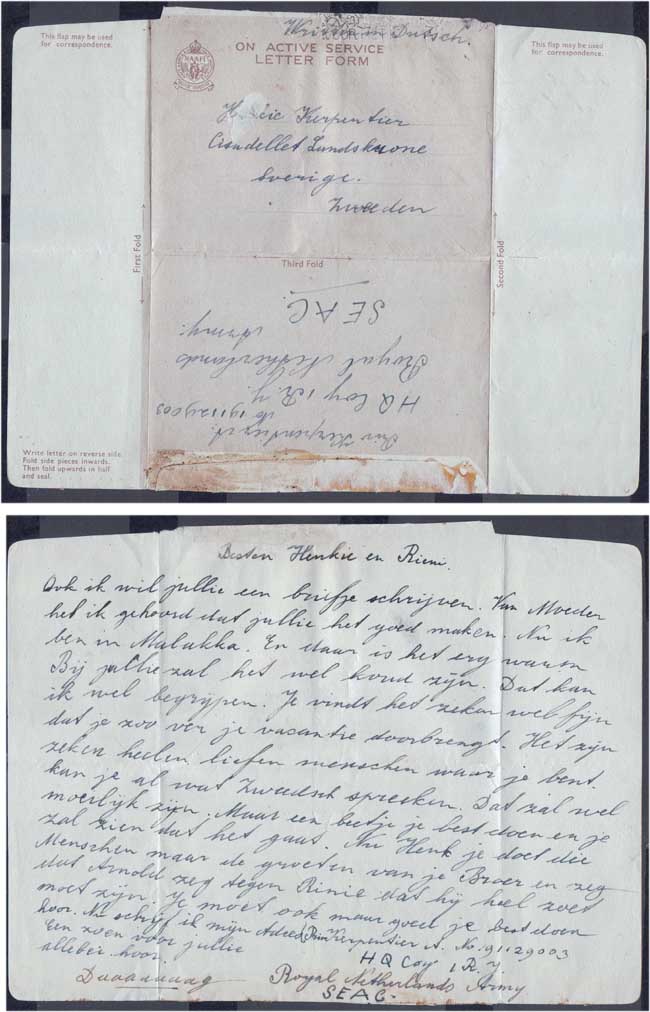 This flap may be used
for correspondence.
Written in Dutsch.
NAAFI
ON ACTIVE SERVICE
LETTER FORM
This flap may be used
for correspondence.
Kerpentier
Landskrone
Sverige.
Zweeden
First Fold
Third Fold
Second Fold
SEAC.
Army.
Royal Netherlands
HQ Coy 1 R.Y.
Write letter on reverse side.
Fold side pieces inwards.
Then fold upwards in half
and seal.
Besten Henkie en Rieni.
Ook ik wil jullie een briefje schrijven. Van Moeder
heb ik gehoord dat jullie het goed maken. Nu ik
ben in Malakka. En daar is het erg warm
Bij jullie zal het wel koud zijn. Dat kan
ik wel begrijpen. Je vindt het zeker wel fijn
dat je zoo ver je vacantie doorbrengt. Het zijn
zeker heelen liefen menschen waar je bent.
kan je al wat Zweedsch spreeken. Dat zal wel
moeilijk zijn. Maar een beetje je best doen en je
zal zien dat het gaat. Nu Henk je doet die
Menschen maar de groeten van je Broer en zeg
dat Arnold zeg tegen Rinie dat hij heel zoet
moet zijn. Je moet ook maar goed je best doen
hoor. Nu schrijf ik mijn Adres Kerpentier A. No. 91129003
Een zoen voor jullie HQ Coy 1 R.Y.
allebei hoor. Royal Netherlands Army
Daaaaaaag SEAC.